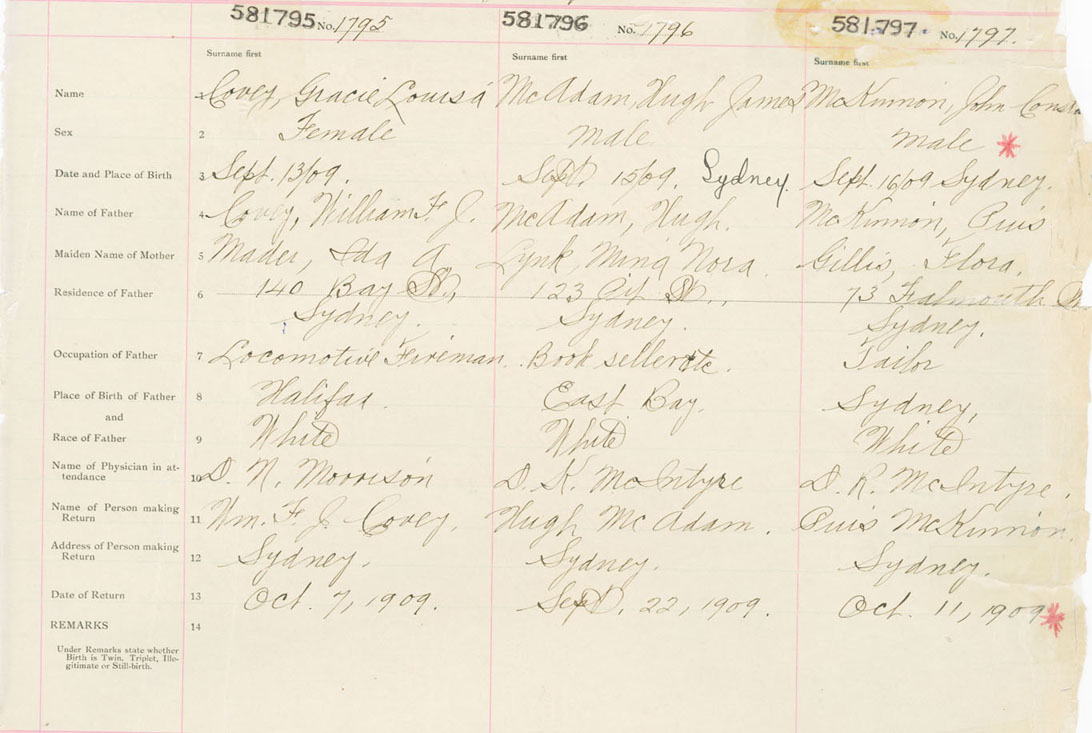 581795 No. 1795 581796 No. 1796 581797 No. 1797.
Surname first Surname first Surname first
Name 1 Covey, Gracie Louisa McAdam, Hugh James McKinnon, John
Sex 2 Female male male
Date and Place of Birth 3 Sept. 13/09. Sept. 15/09. Sydney. Sept. 16/09 Sydney.
Name of Father 4 Covey, William F. J. McAdam, Hugh. McKinnon, Puis
Maiden Name of Mother 5 Mader, Ida A Lynk, Mina Nora. Gillis, Flora.
Residence of Father 6 140 Bay St., 123 St., 73 Falmouth
Sydney. Sydney. Sydney.
Occupation of Father 7 Locomotive Fireman. Book seller etc. Tailor
Place of Birth of Father 8 Halifax. East Bay. Sydney,
and
Race of Father 9 White White White
Name of Physician in at-
tendance 10 D. N. Morrison D. K. McIntyre D. R. McIntyre.
Name of Person making
Return 11 Wm. F. J. Covey. Hugh McAdam. Puis McKinnon.
Address of Person making
Return 12 Sydney. Sydney. Sydney.
Date of Return 13 Oct. 7, 1909. Sept. 22, 1909. Oct. 11, 1909
REMARKS 14
Under Remarks state whether
Birth is Twin. Triplet, Ille-
gitimate or Still-birth.